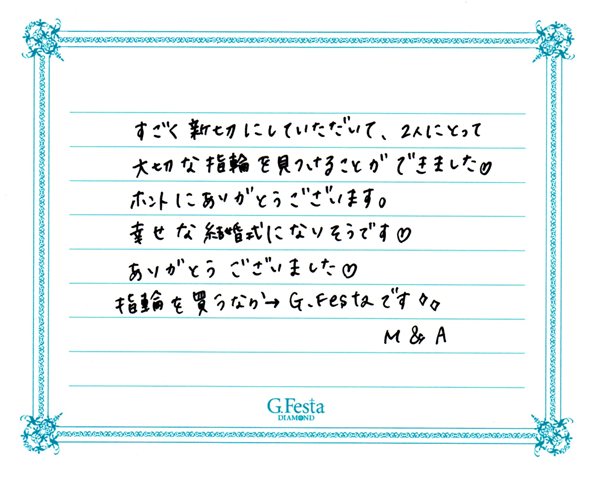 すごく新切にしていただいて、2人にとって
大切な指輪を見つけることができました♡
ホントにありがとうございます。
幸せな結婚式になりそうです♡
ありがとうございました♡
指輪を買うなら→G.Festaです!!。
M & A
G.Festa
DIAMOND